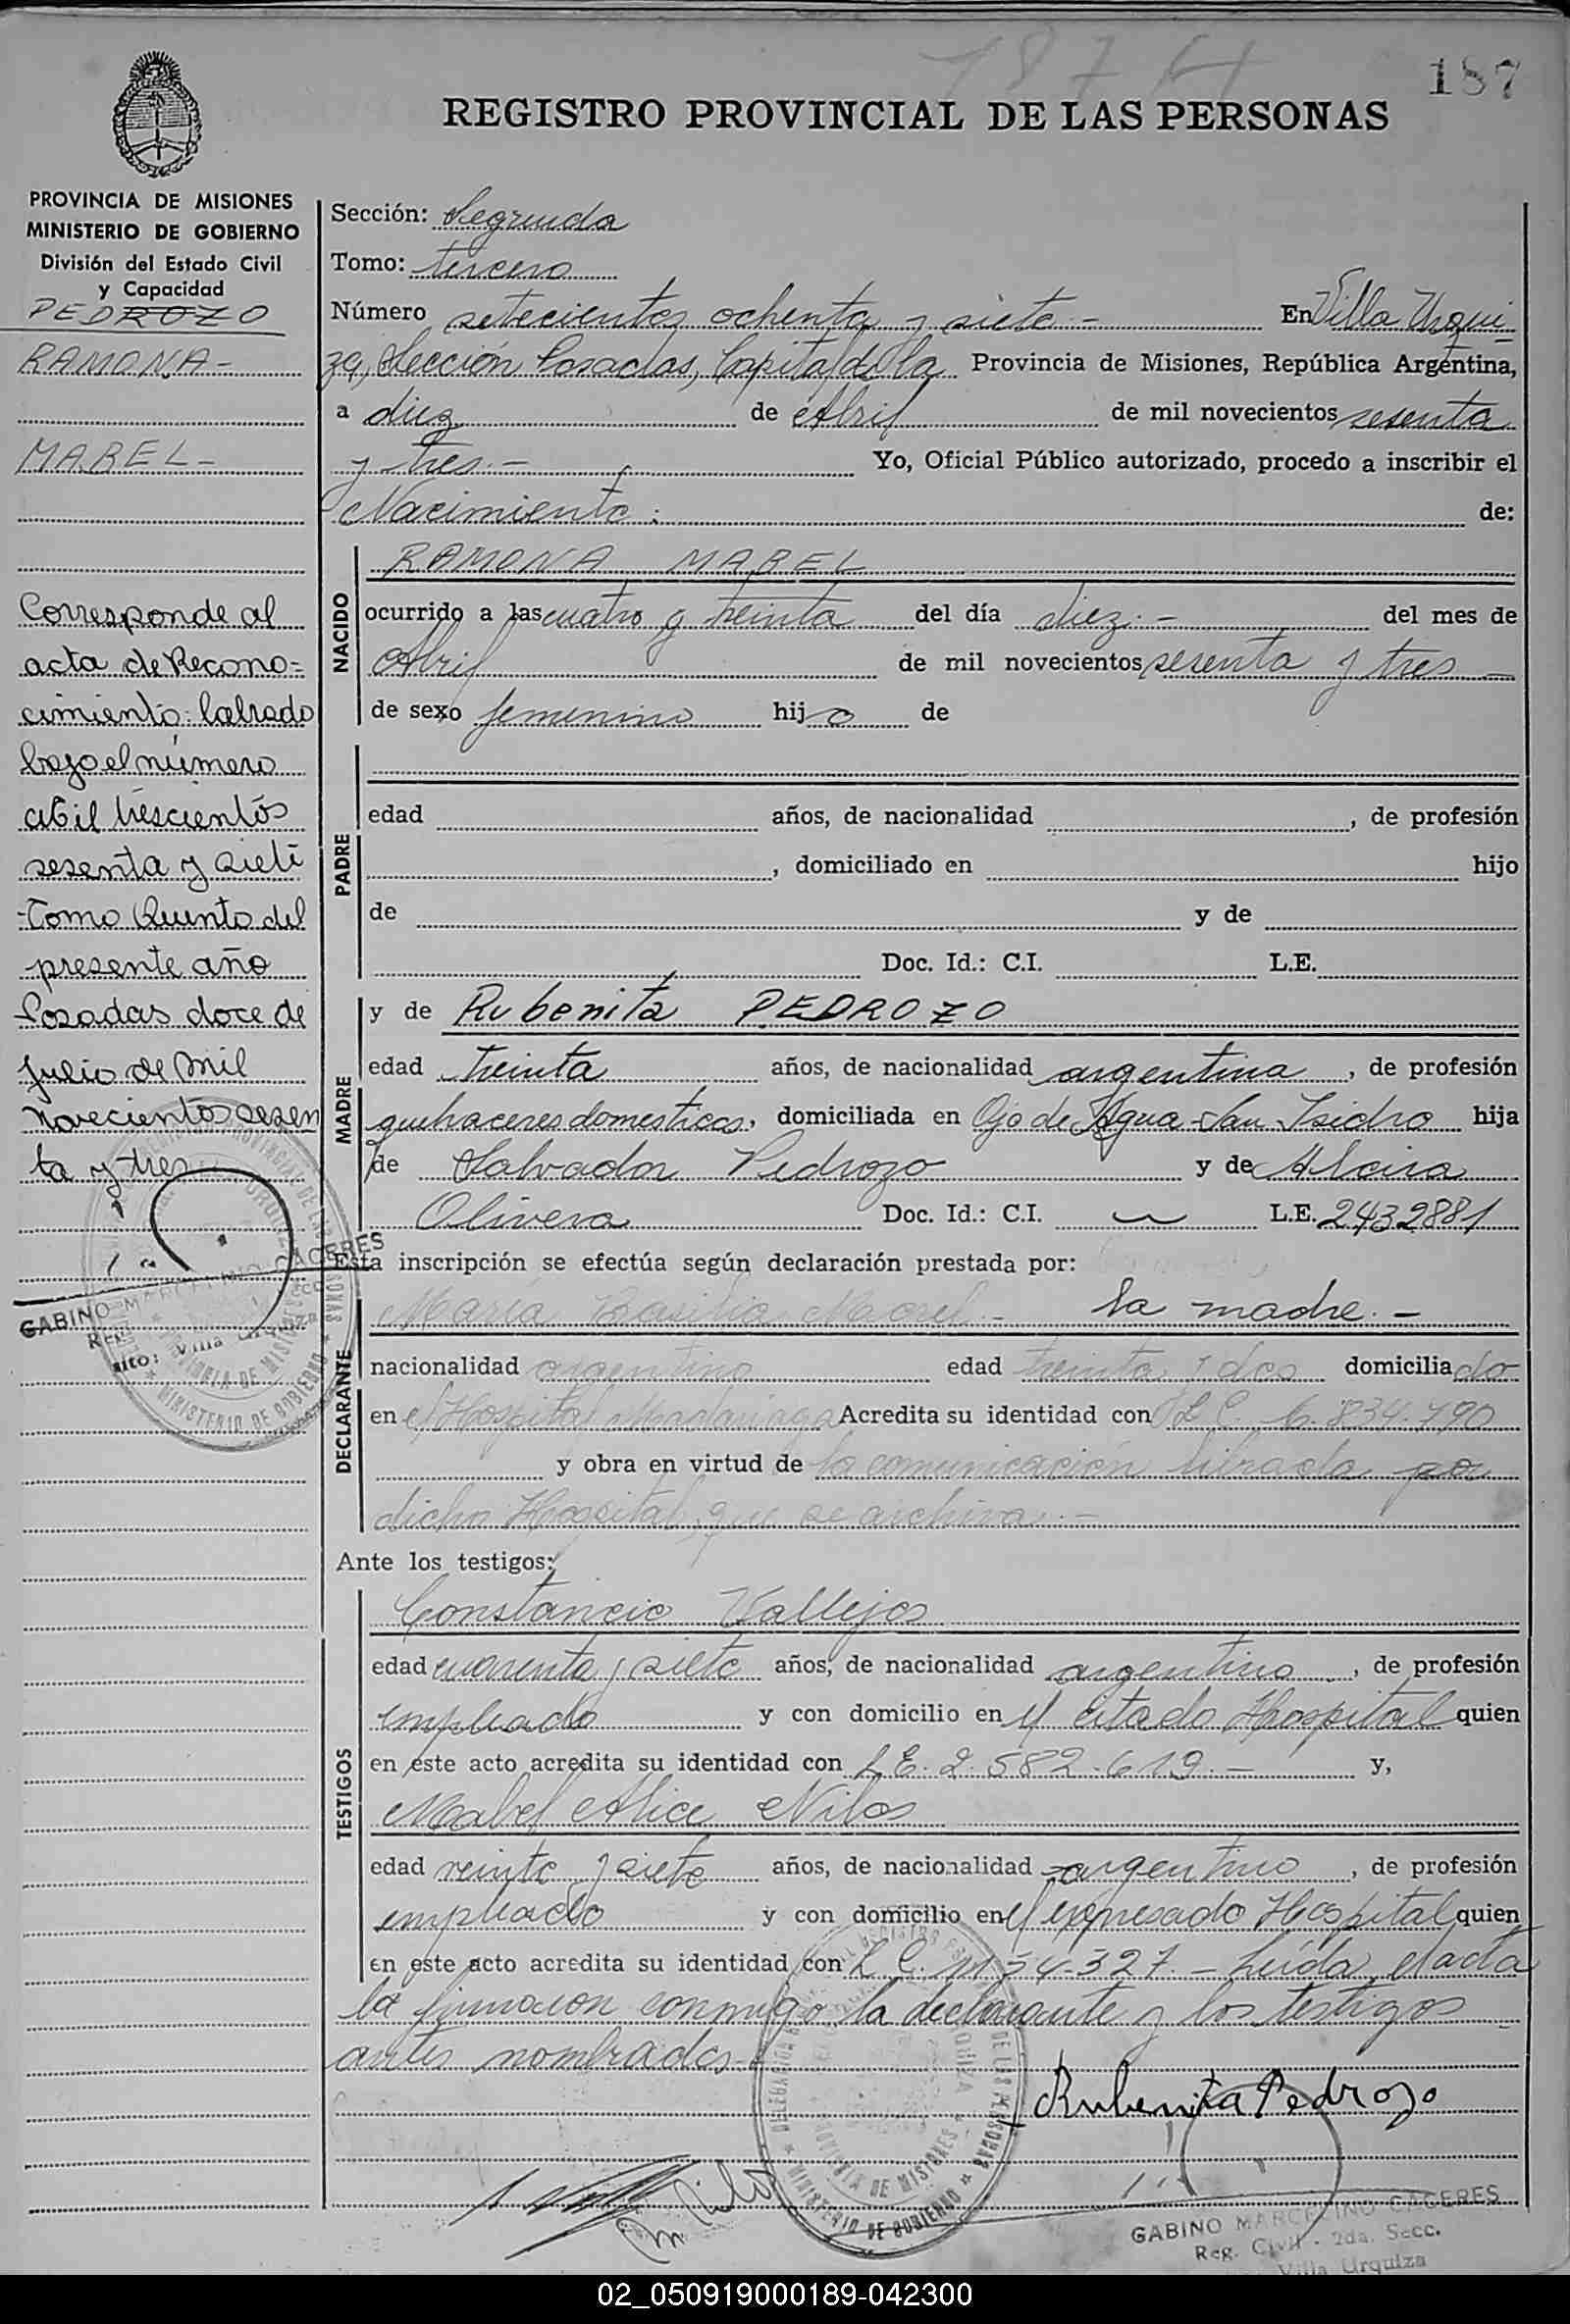 187
REGISTRO PROVINCIAL DE LAS PERSONAS
PROVINCIA DE MISIONES
MINISTERIO DE GOBIERNO
División del Estado Civil
y Capacidad
PEDROZO
RAMONA-
MABEL-
Corresponde al
acta de Recono=
cimiento: labrado
bajo el número
Mil trescientos
sesenta y siete
Tomo Quinto del
presente año
Posadas doce de
julio de Mil
novecientos sesen
ta y tres
GABINO MARCELINO CACERES
Villa Urquiza
Sección: Segunda
Tomo: tercero
Número setecientos ochenta y siete - En Villa Urqui-
za, Sección Posadas, Capital de la Provincia de Misiones, República Argentina,
a diez de Abril de mil novecientos sesenta
y tres.- Yo, Oficial Público autorizado, procedo a inscribir el
Nacimiento: de:
NACIDO
RAMONA MABEL
ocurrido a las cuatro y treinta del día diez.- del mes de
Abril de mil novecientos sesenta y tres -
de sexo femenino hijo de
PADRE
edad años, de nacionalidad , de profesión
, domiciliado en hijo
de y de
Doc. Id.: C.I. L.E.
MADRE
y de Rubenita PEDROZO
edad treinta años, de nacionalidad argentina, de profesión
quehaceres domesticos, domiciliada en Ojo de Agua-San Isidro hija
de Salvador Pedrozo y de Alcira
Olivera Doc. Id.: C.I. L.E. 2432881
Esta inscripción se efectúa según declaración prestada por:
DECLARANTE
María Basilia Morel.- la madre.-
nacionalidad argentina edad treinta y dos domiciliado
en el Hospital Madariaga Acredita su identidad con L C. 6.834.790
y obra en virtud de la comunicación librada por
dicho Hospital, que se archiva.-
Ante los testigos:
TESTIGOS
Constancio Vallejos
edad cuarenta y siete años, de nacionalidad argentino, de profesión
empleado y con domicilio en el citado Hospital quien
en este acto acredita su identidad con L.E. 2.582.619.- y,
Mabel Alice Nilos
edad veinte y siete años, de nacionalidad argentino, de profesión
empleado y con domicilio en el expresado Hospital quien
en este acto acredita su identidad con L C. - Leída el acta
la firmaron conmigo la declarante y los testigos
antes nombrados.-
Rubenita Pedrozo
GABINO MARCELINO CACERES
Reg. Civil - 2da. Secc.
Villa Urquiza
02_050919000189-042300